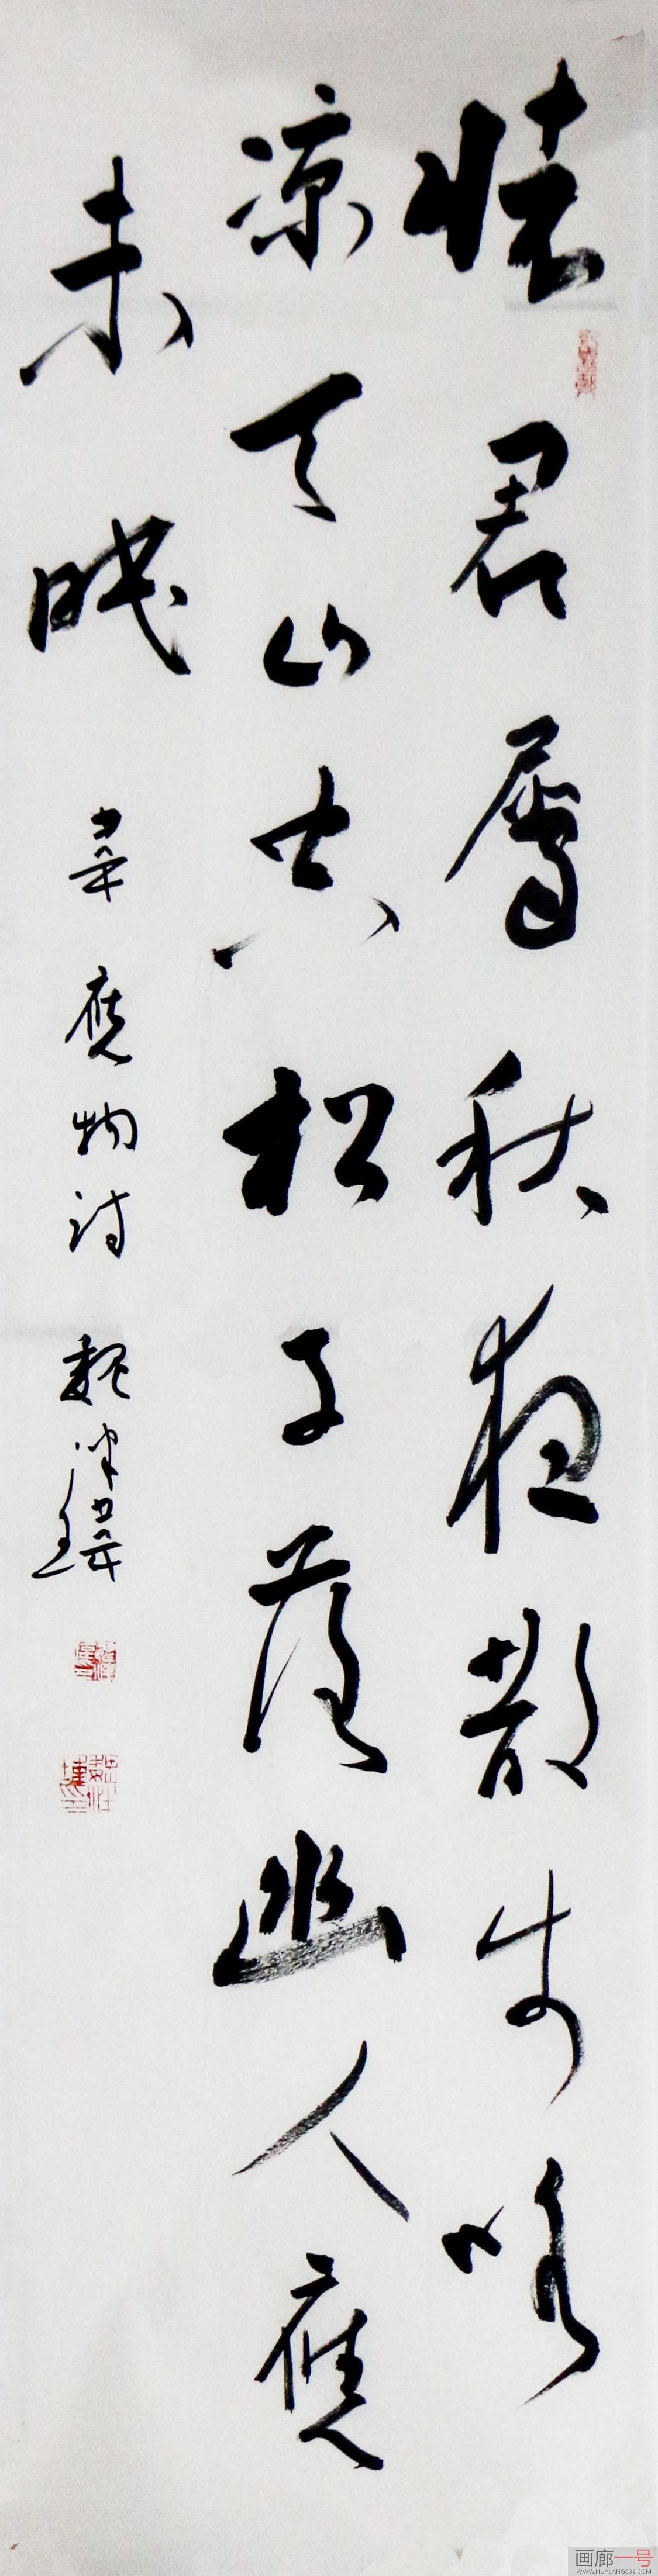 懷君屬秋夜散步咏
凉天山空松子落幽人應
未眠
韋應物詩 魏
画廊一号
WWW.HUALANG001.COM